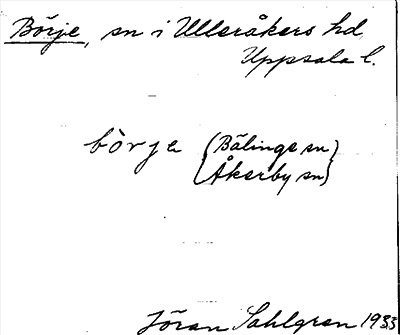 Börje, sn i Ulleråkers hd
Uppsala l.
bòrje (Bälings sn)
(Åkerby sn)
Jöran Sahlgren 1933